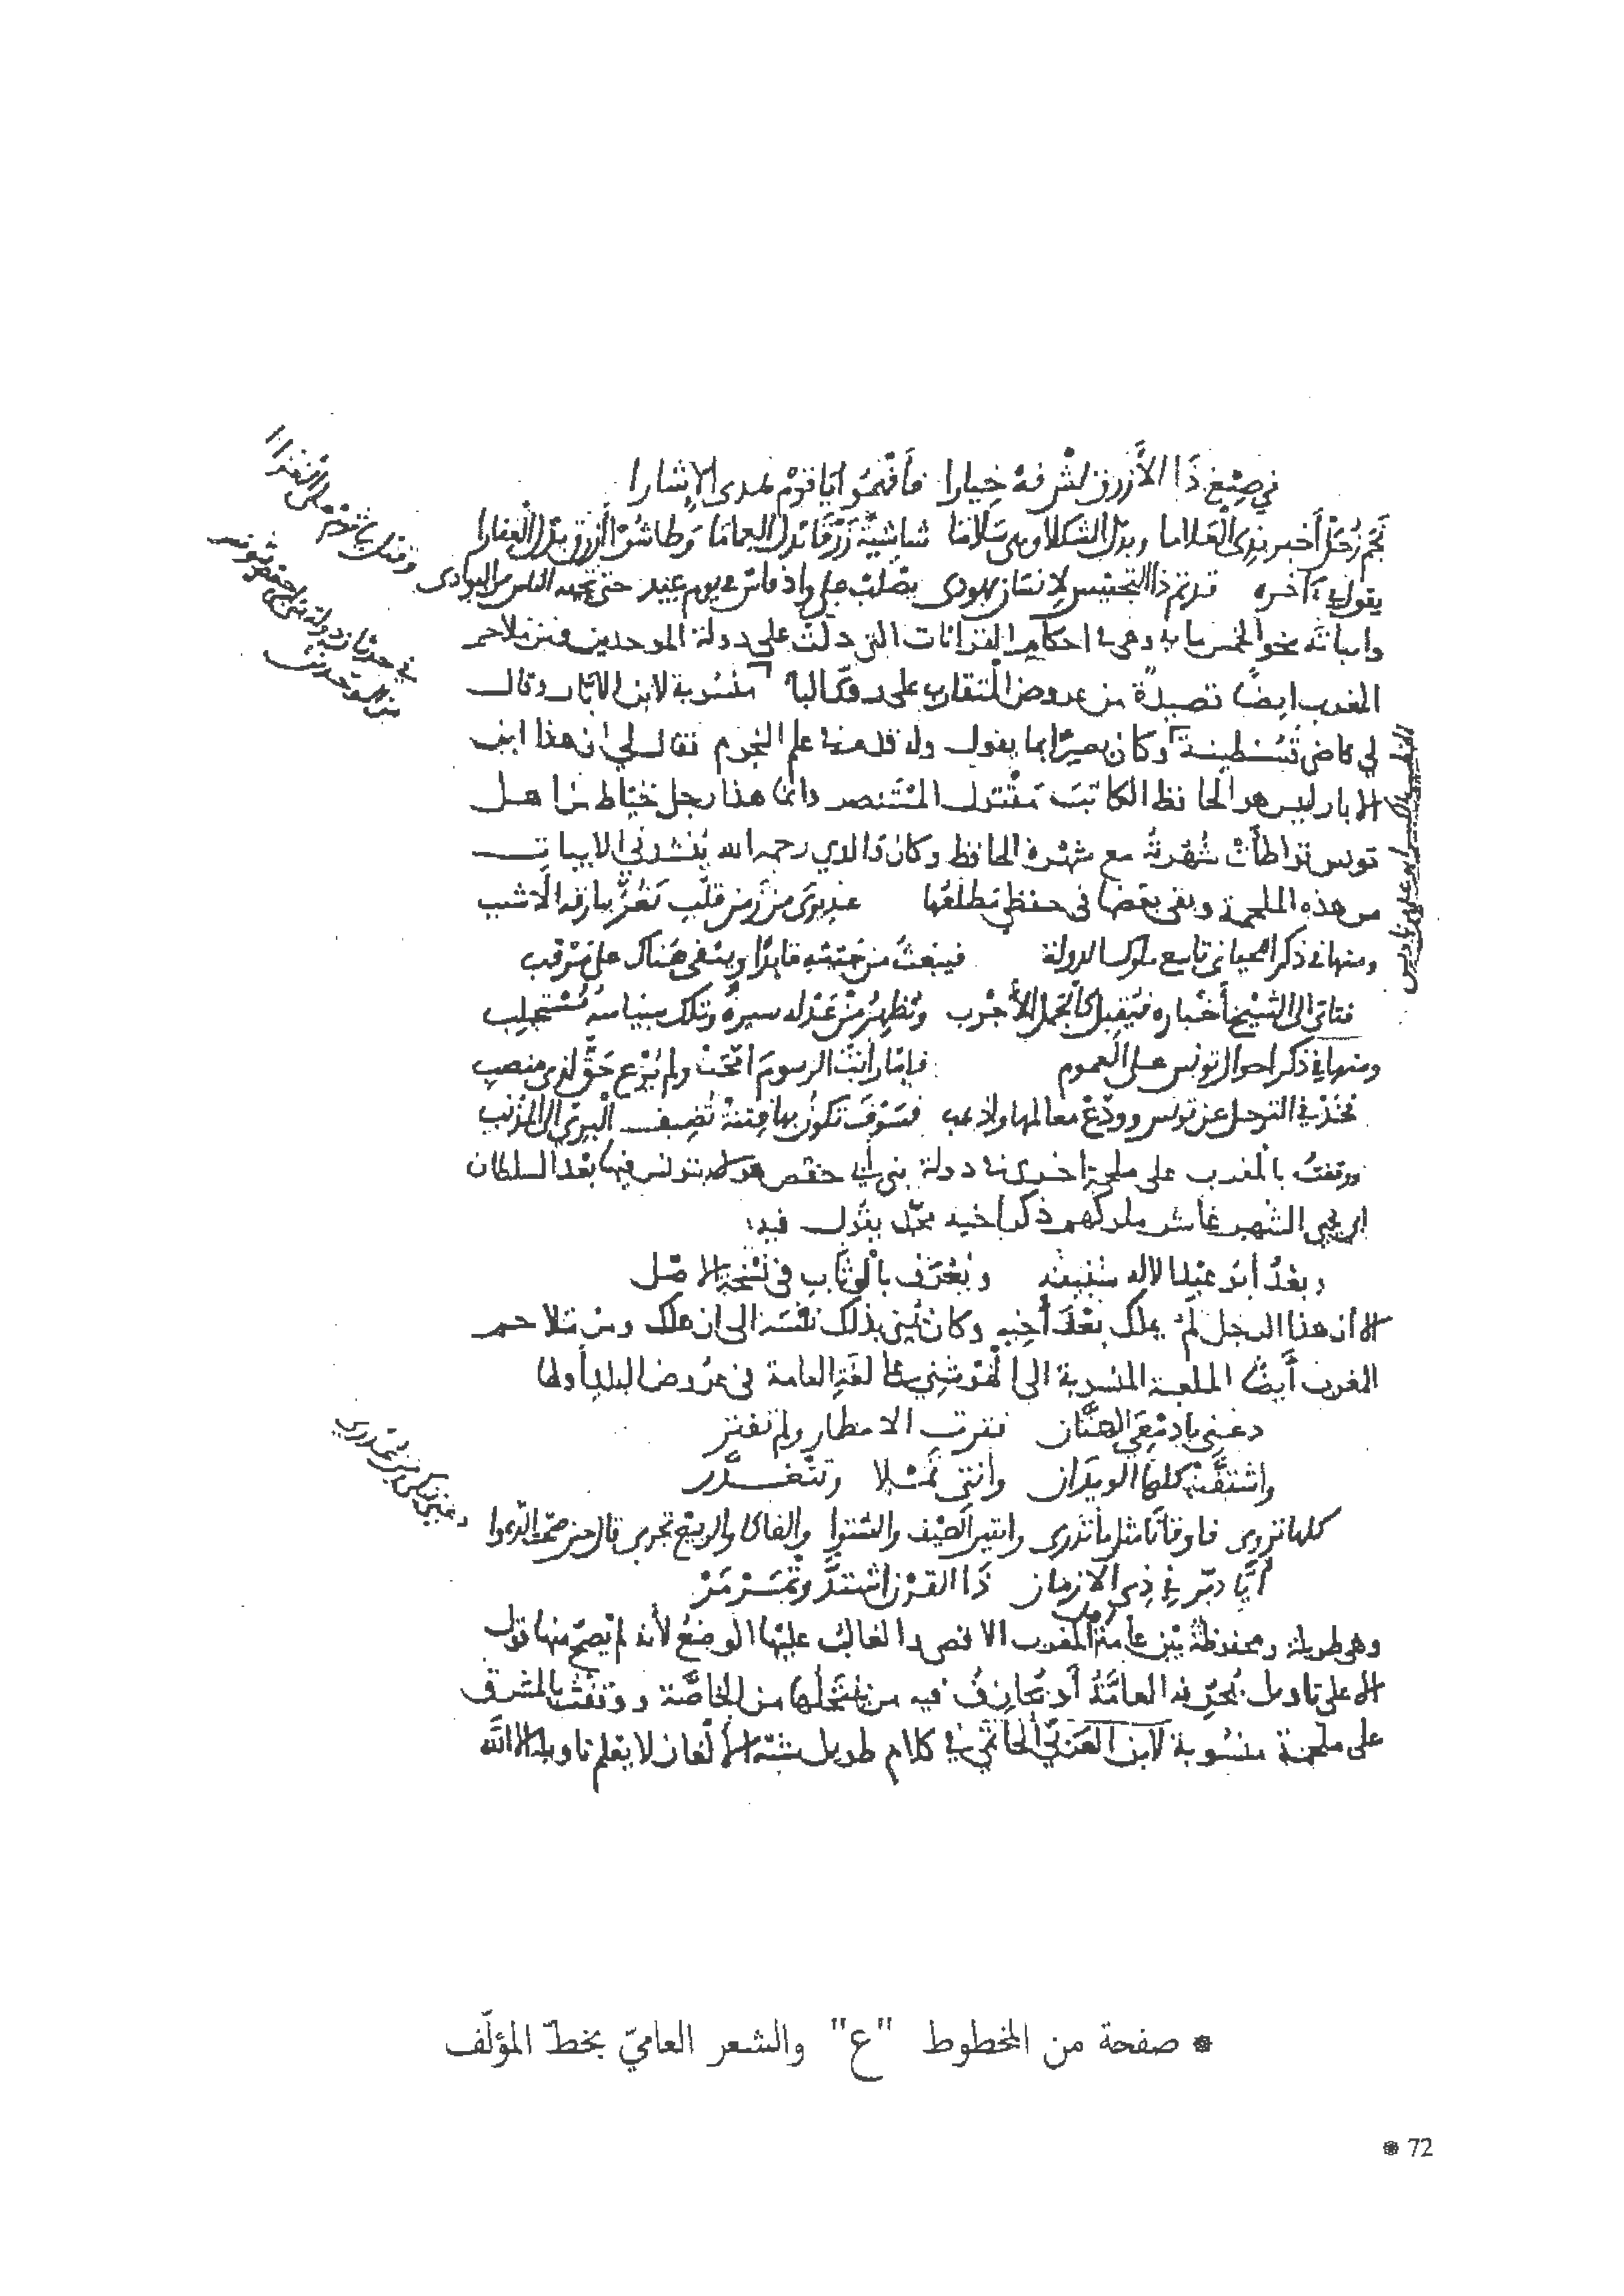 في صبغ ذا الأزرق لشرفه خيارا فافهموا يا قوم هذى الإشارا
نجم زحل أخبر بذى العلاما وبدل الشكلا وهى سلاما شاشية زرقا بدل العماما وطاشن أزرق بدل الغفارا
يقول في آخره قد تم ذا التجنيس لإنسان يهودى يصلب على واد فاس في يوم عيد حتى يجيه الناس من البوادى
وقتله يا قوم على الفرا
وابياته نحو الخمس ماية وهي في احكام القرانات التي دلت على دولة الموحدين ومن ملاحم
المغرب ايضًا قصيدة من عروض المتقارب على روي البا
في حدثان دولة بني ابي حفص بتونس
من الموحدين
منسوبة لابن الابار وقال
لي قاضي قسنطينة
الخطيب الكبير ابو علي بن باديس
وكان بصيرًا بما يقول وله قدم في علم النجوم فقال لي ان هذا ابن
الابار ليس هو الحافظ الكاتب مقتول المستنصر وانما هذا رجل خياط من اهل
تونس تواطأت شهرته مع شهرة الحافظ وكان والدي رحمه الله ينشدني الابيات
من هذه الملحمة وبقي بعضها في حفظي مطلعها عذيرى من زمن قلب يغر ببارقه الاشنب
ومنها في ذكر اللحياني تاسع ملوك الدولة فيبعث من جيشه قايدًا ويبقى هناك على مرقب
فتاتي الى الشيخ أخباره فيقبل كالجمل الأجرب ويظهر من عدله سيرة وتلك سياسة مستجلب
ومنها في ذكر احوال تونس على العموم فإما رأيت الرسوم امحت ولم يرع حق لذى منصب
فخذ في الترحل عن تونس وودع معالمها واذهب فسوف تكون بها فتنة تضيف البرئ الى المذنب
ووقفت بالمغرب على ملحمة اخرى في دولة بني ابي حفص هولاء بتونس فيها بعد السلطان
ابي يحيى الشهير عاشر ملوكهم ذكر أخيه محمد يقول فيه
وبعد أبو عبد الاله شقيقه ويعرف بالوثاب في نسخة الاصل
الا أن هذا الرجل لم يملك بعد أخيه وكان يمني بذلك نفسه الى ان هلك ومن ملاحم
المغرب أيضًا الملعبة المنسوبة الى الهوشني على لغة العامة في عروض البلد أولها
دعني يا دمعي الهتان فترت الامطار ولم تفتر
واستقت كلها الويدان وانتي تملا وتتغدر
دعني نبكي من غدري
كلها تروى فاوقاتًا مثل ما تدرى وانتبر الصيف والشتوا والفاكا والربيع تجرى قال حين صحت الدعوا
أيا دبر في ذى الازمان ذا القرن اشتد وتمرمر
وهي طويلة ومحفوظة بين عامة المغرب الاقصى والغالب عليها الوضع لأنه لم يصح منها قول
الا على تاويل تحرفه العامة أو تجازف فيه من ينتحلها من الخاصة ووقفت بالمشرق
على ملحمة منسوبة لابن العربي الحاتمي في كلام طويل شبه الألغاز لا يعلم تاويله الا الله
❋ صفحة من المخطوط "ع" والشعر العاميّ بخطّ المؤلّف
❋ 72